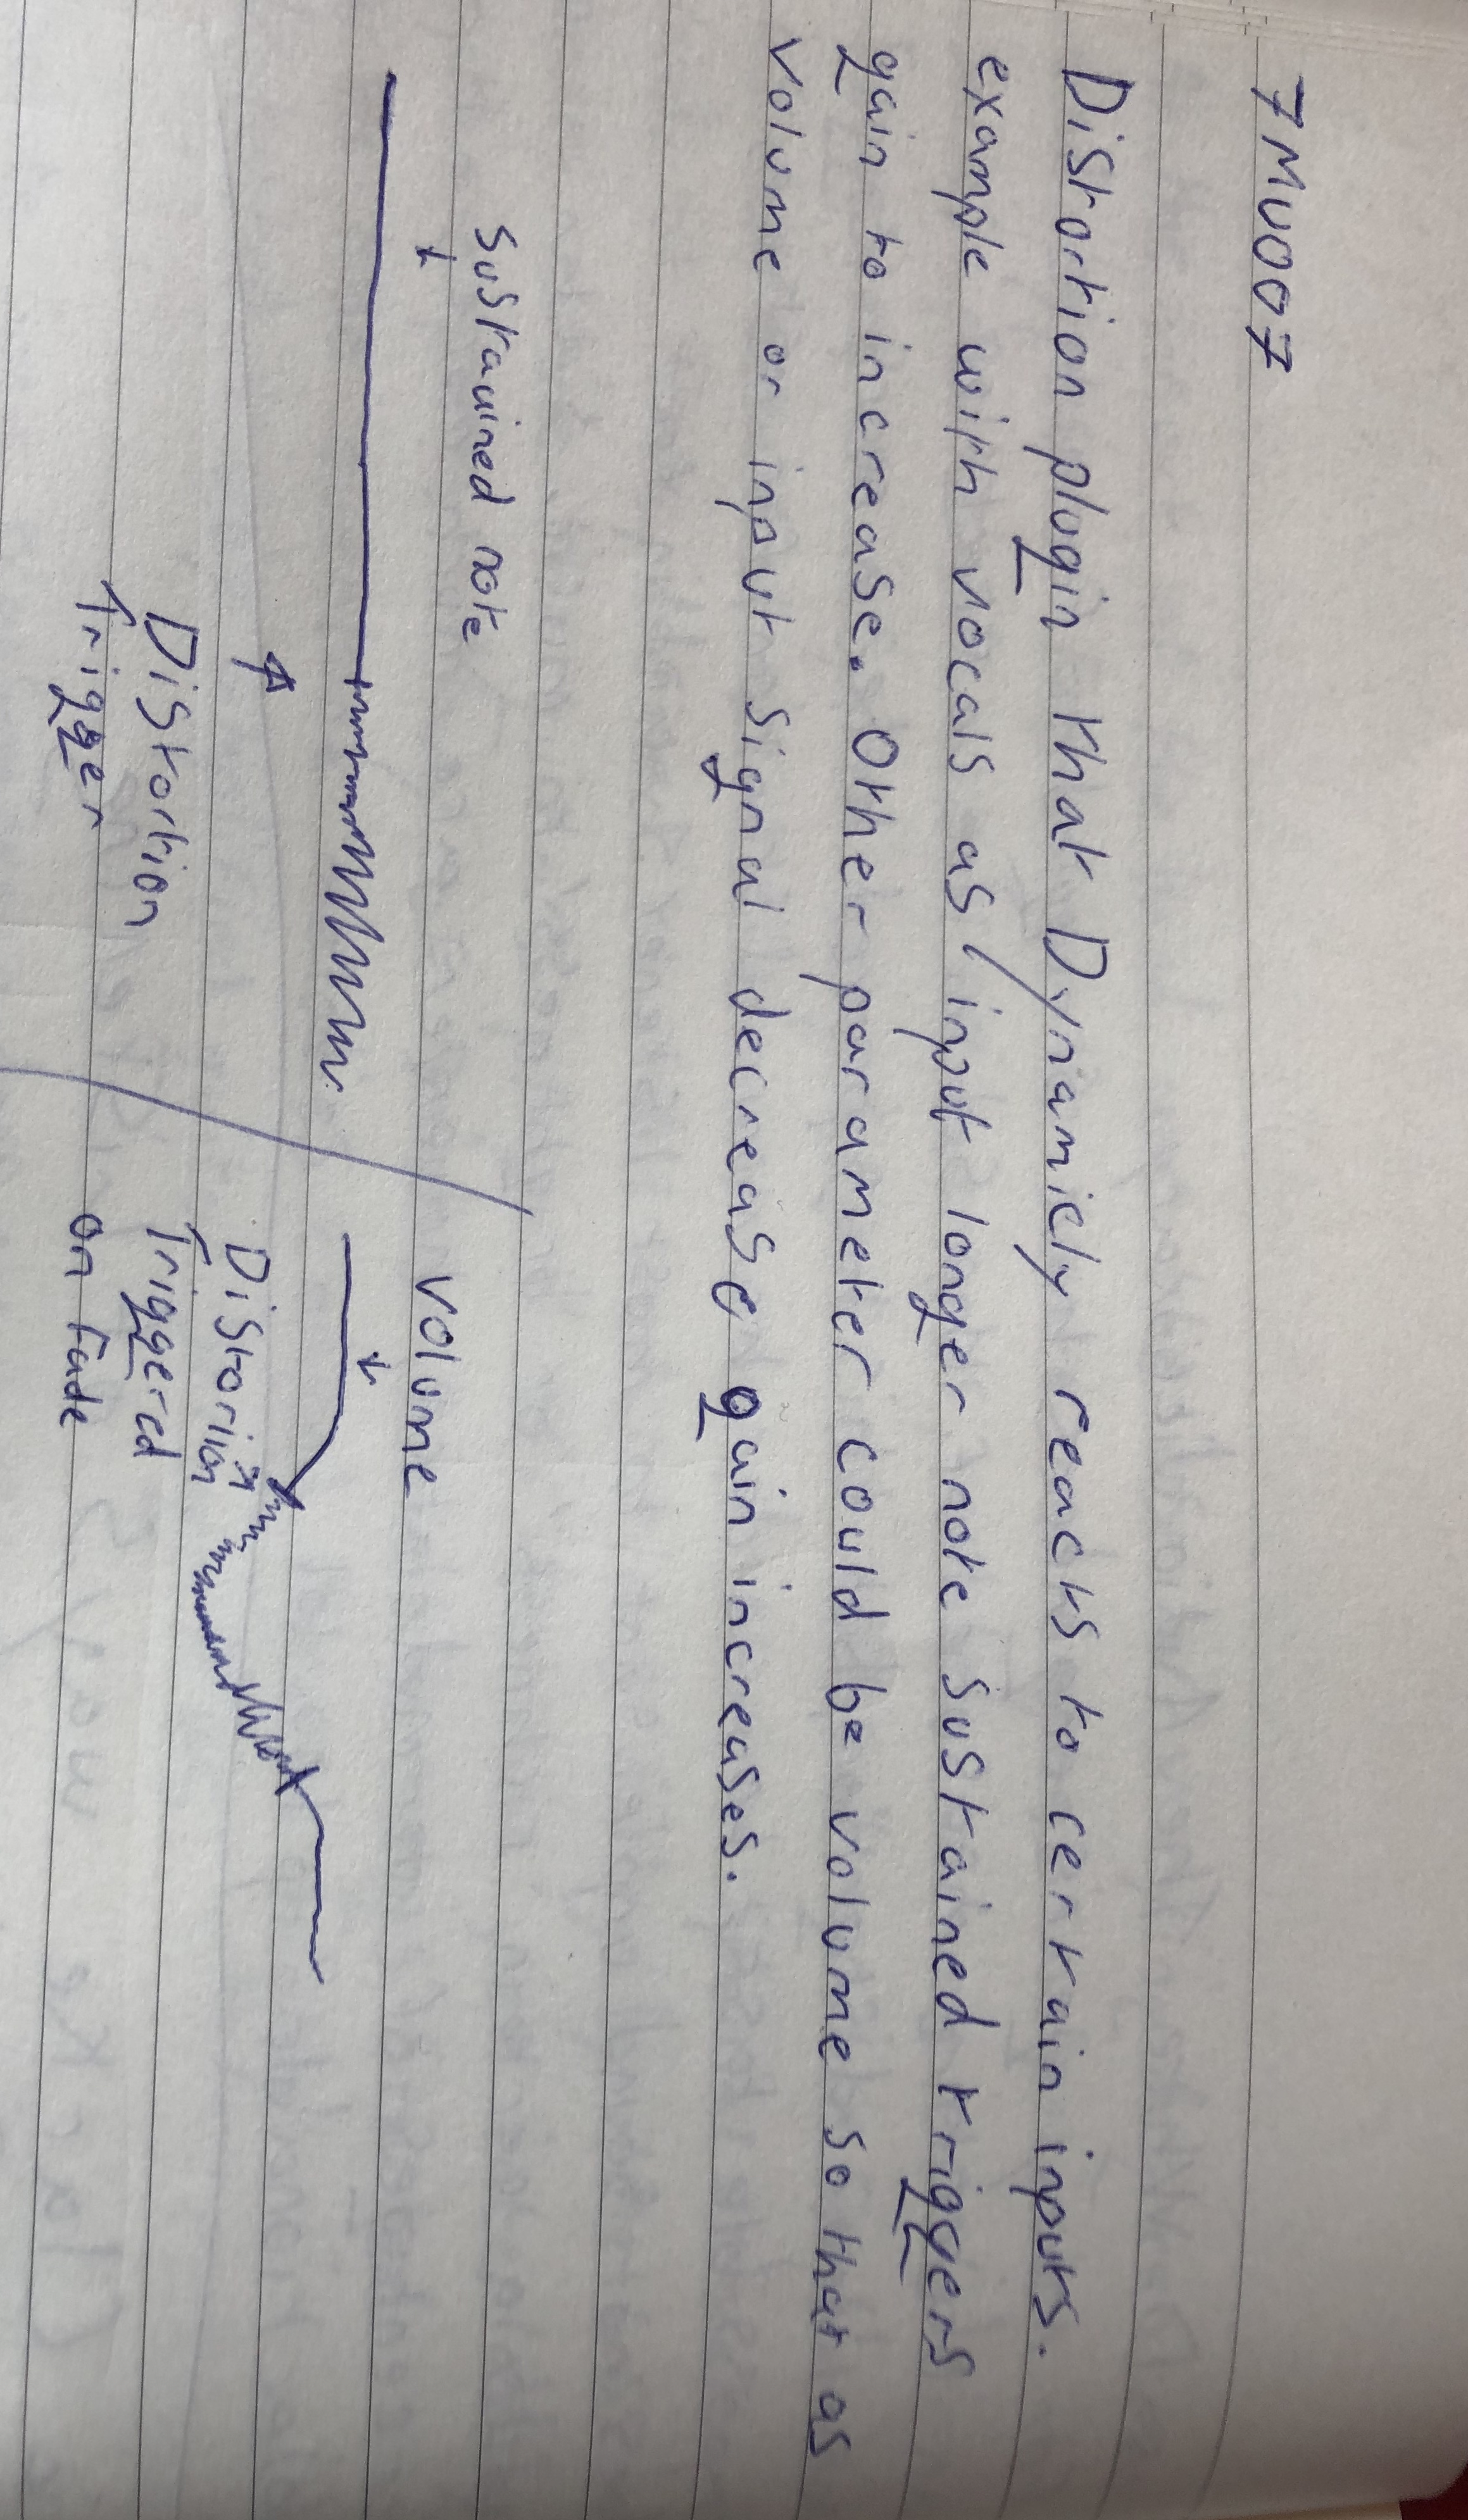 7MU007
Distortion plugin that Dynamicly reacts to certain inputs.
example with vocals as/input longer note sustained triggers
gain to increase. Other parameter could be volume so that as
volume or input signal decrease gain increases.
sustained note
Distortion
Trigger
volume
Distortion
Triggered
on fade